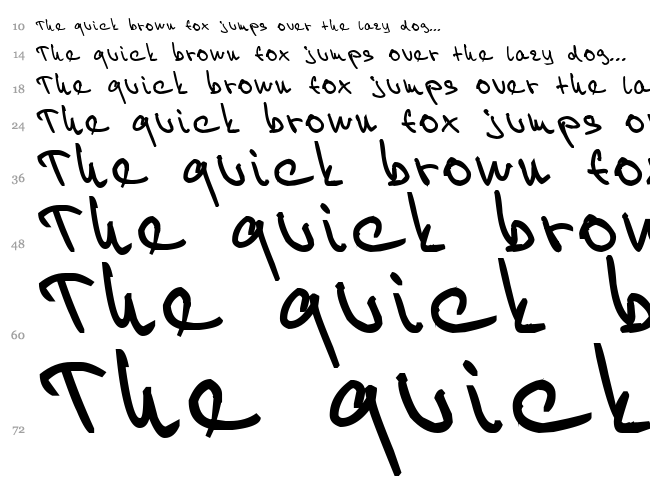 10 The quick brown fox jumps over the lazy dog...
14 The quick brown fox jumps over the lazy dog...
18 The quick brown fox jumps over the la
24 The quick brown fox jumps o
36 The quick brown fo
48 The quick brow
60 The quick b
72 The quick